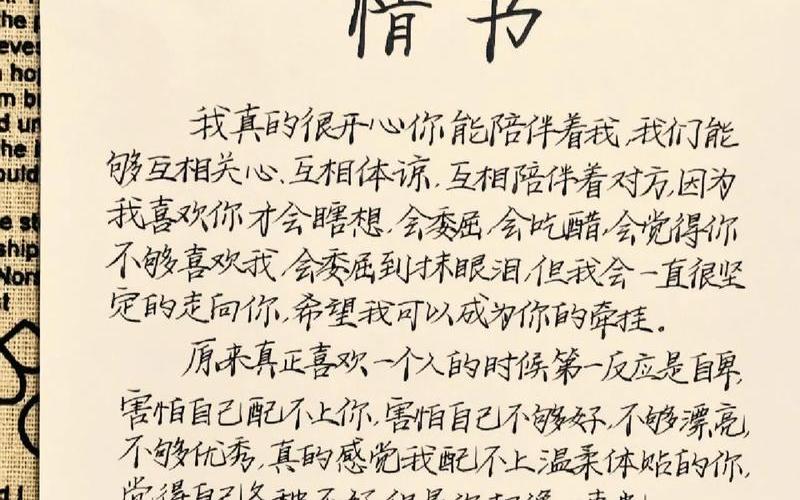 情书
我真的很开心你能陪伴着我,我们能
够互相关心、互相体谅,互相陪伴着对方,因为
我喜欢你才会瞎想,会委屈,会吃醋,会觉得你
不够喜欢我,会委屈到抹眼泪,但我会一直很坚
定的走向你,希望我可以成为你的牵挂。
原来真正喜欢一个人的时候第一反应是自卑,
害怕自己配不上你,害怕自己不够好,不够漂亮,
不够优秀,真的感觉我配不上温柔体贴的你,
觉得自己各种不好,但是
the
eves
hop
m br
d un
the
ould
e st
ship
Non
t